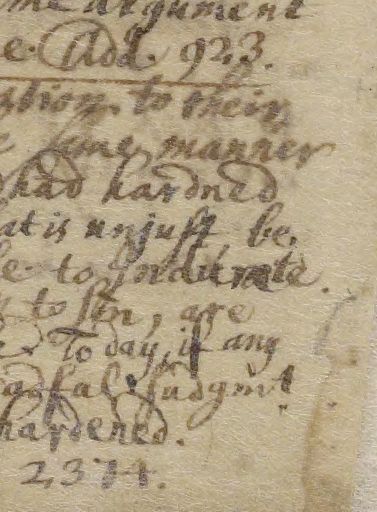 me argument
e. Add. 923.
ation to their
e same manner
had hardned
at is unjust, be,
le to Indurate.
to sin, are
e. To day, if any
adful Judgmt.
hardened.
2374.